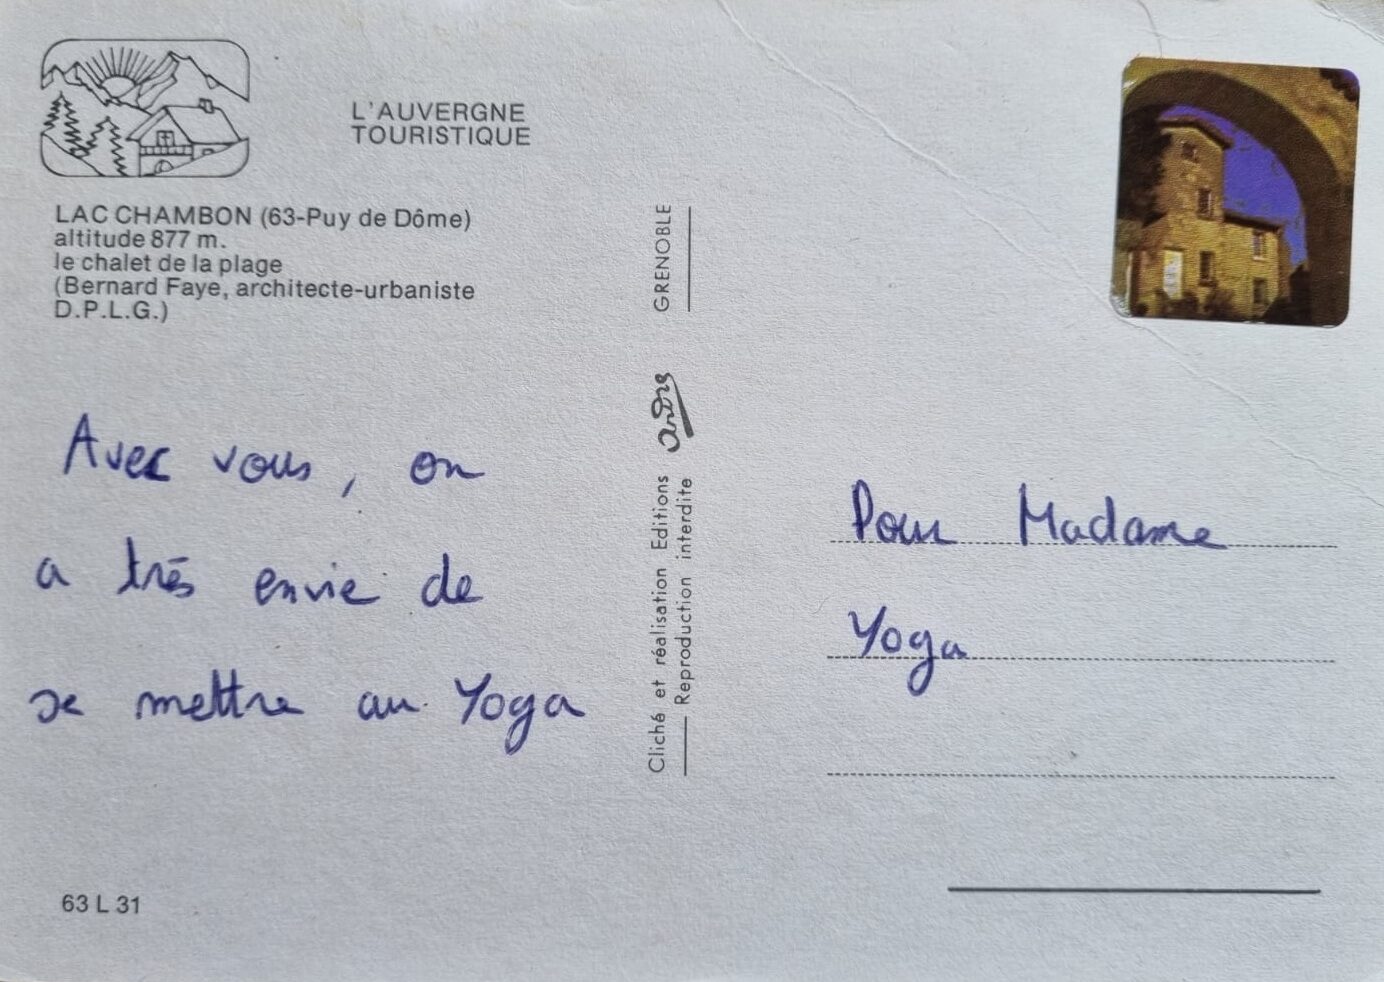 L'AUVERGNE
TOURISTIQUE
LAC CHAMBON (63-Puy de Dôme)
altitude 877 m.
le chalet de la plage
(Bernard Faye, architecte-urbaniste
D.P.L.G.)
Avec vous, on
a très envie de
se mettre au Yoga
63 L 31
Cliché et réalisation Editions andré GRENOBLE
Reproduction interdite
Pour Madame
Yoga